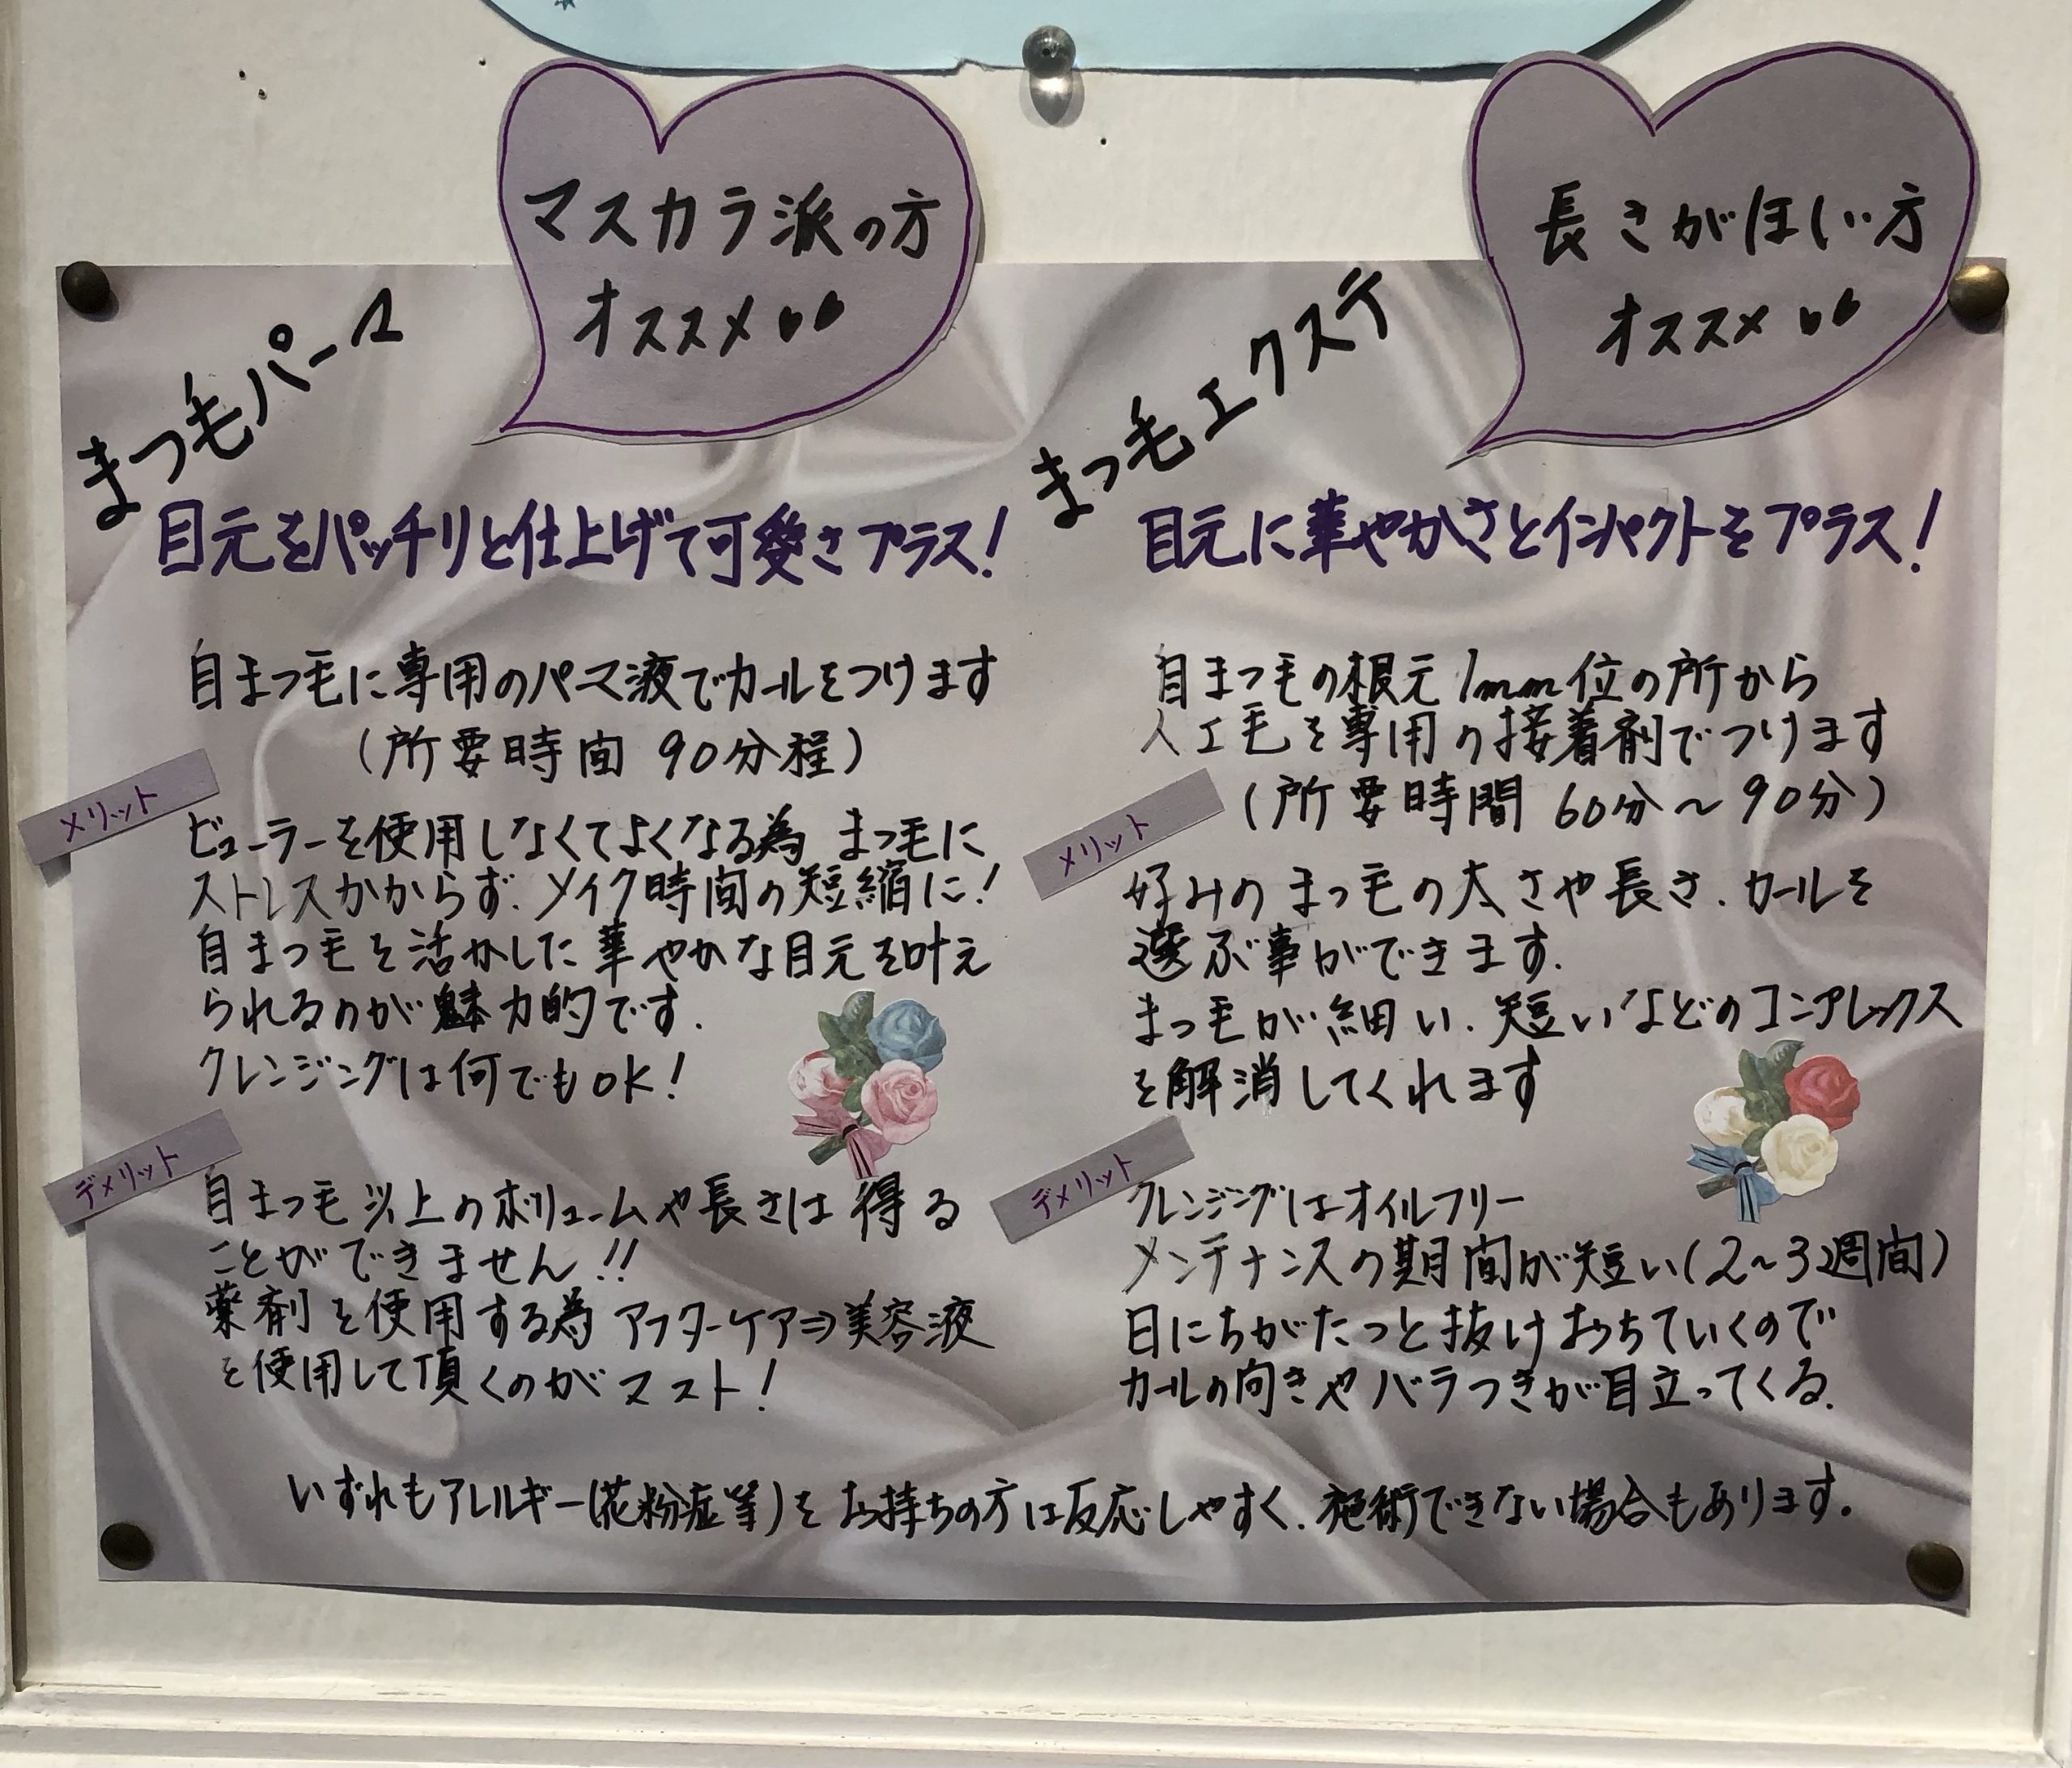 マスカラ派の方
オススメ
まつ毛パーマ
目元をパッチリと仕上げて可愛さプラス!
自まつ毛に専用のパーマ液でカールをつけます
(所要時間 90分程)
メリット
ビューラーを使用しなくてよくなる為 まつ毛に
ストレスかからず、メイク時間の短縮に!
自まつ毛を活かした華やかな目元を叶え
られるのが魅力的です.
クレンジングは何でもOK!
デメリット
自まつ毛以上のボリュームや長さは得る
ことができません!!
薬剤を使用する為 アフターケア⇒美容液
を使用して頂くのがマスト!
長さがほしい方
オススメ
まつ毛エクステ
目元に華やかさとインパクトをプラス!
自まつ毛の根元1mm位の所から
人工毛を専用の接着剤でつけます
(所要時間 60分~90分)
メリット
好みのまつ毛の太さや長さ、カールを
選ぶ事ができます.
まつ毛が細い、短いなどのコンプレックス
を解消してくれます
デメリット
クレンジングはオイルフリー
メンテナンスの期間が短い(2~3週間)
日にちがたつと抜けおちていくので
カールの向きやバラつきが目立ってくる.
いずれもアレルギー(花粉症等)をお持ちの方は反応しやすく、施術できない場合もあります。